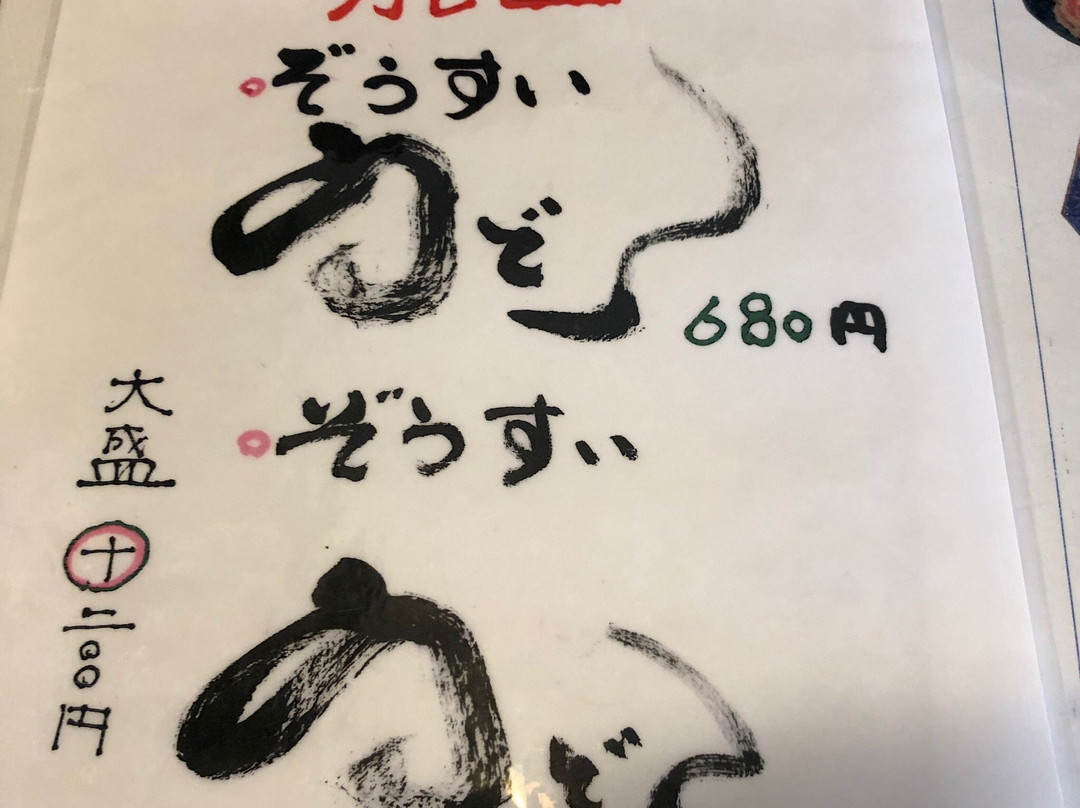 ぞうすい
うどん
680円
ぞうすい
うどん
大盛 ㊉ 二〇〇円